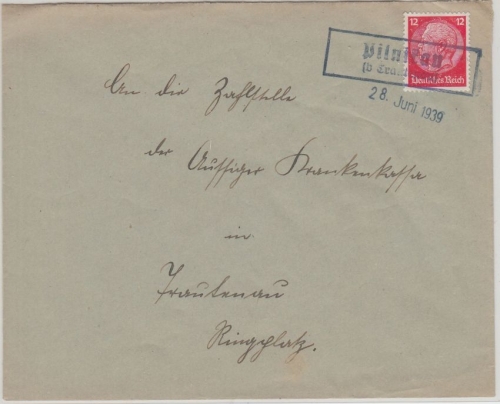 12 12
Deutsches Reich
Pilnikau
28. Juni 1939
An die Zahlstelle
der Aussiger Krankenkassa
in
Trautenau
Ringplatz.